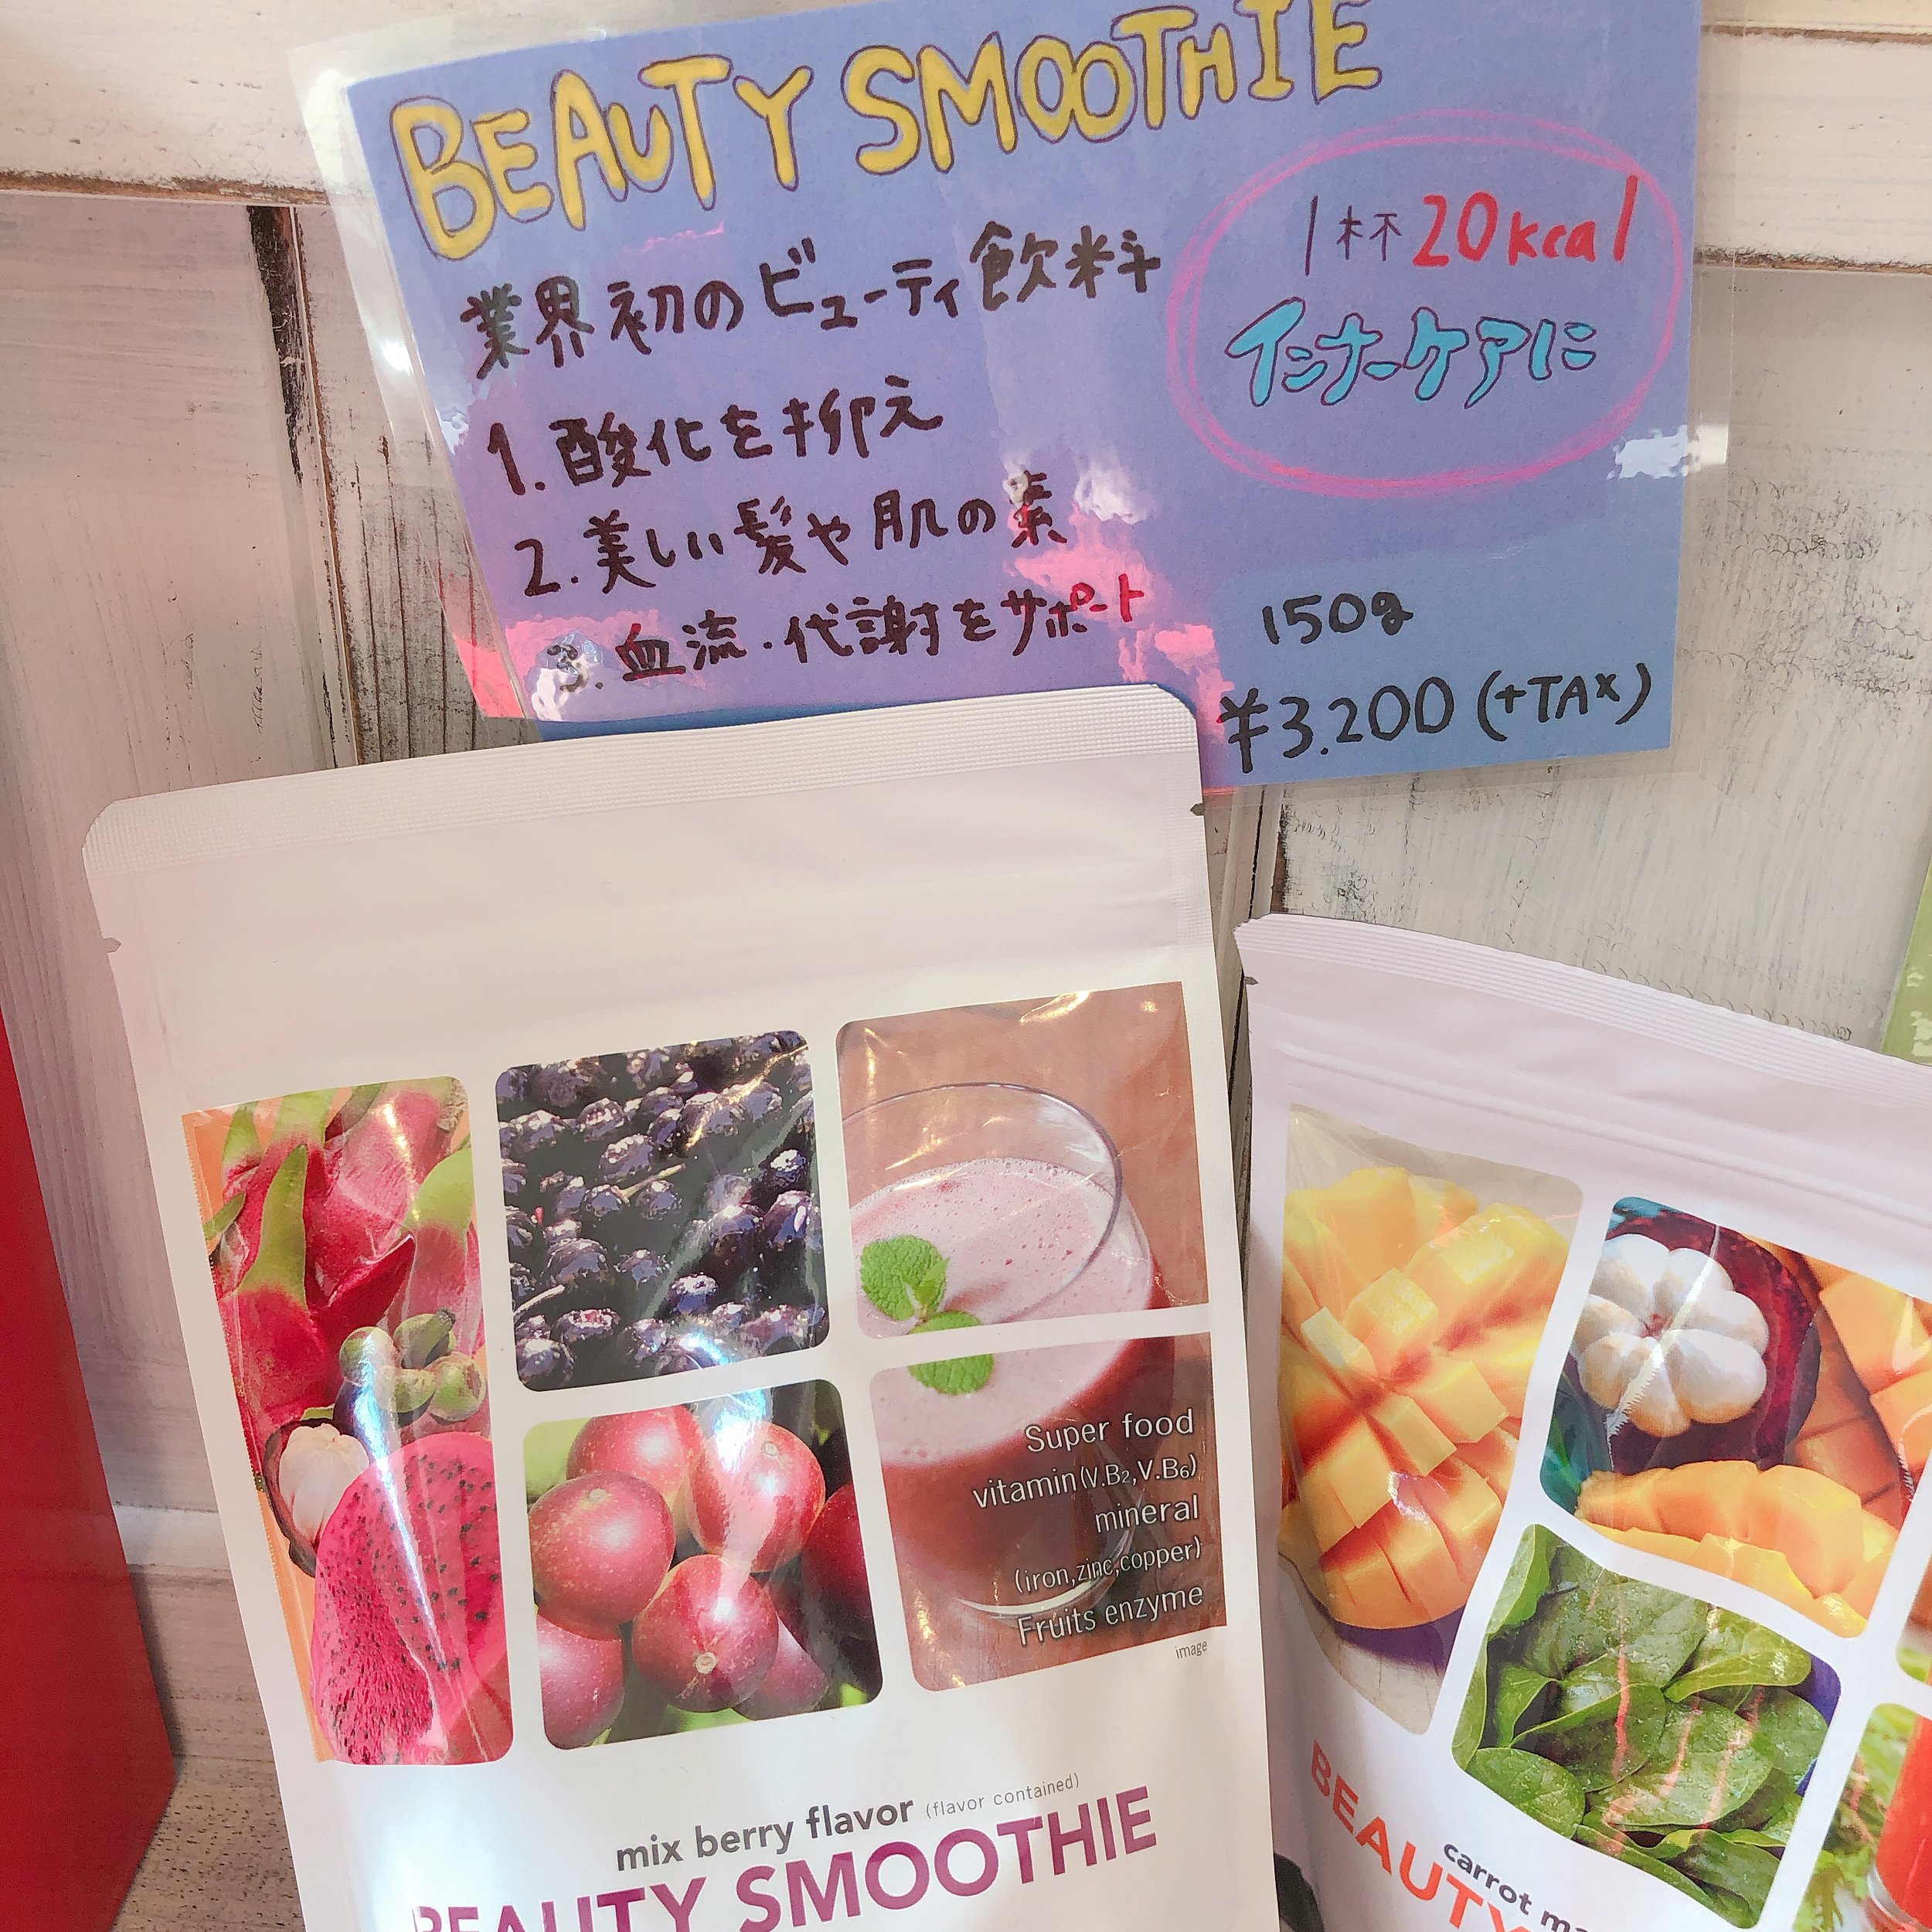 BEAUTY SMOOTHIE
業界初のビューティ飲料
1杯20kcal
インナーケアに
1. 酸化を抑え
2. 美しい髪や肌の素
3. 血流・代謝をサポート
150g
¥3.200 (+TAX)
Super food
vitamin(V.B₂,V.B₆)
mineral
(iron,zinc,copper)
Fruits enzyme
image
mix berry flavor (flavor contained)
BEAUTY SMOOTHIE
carrot
BEAUTY